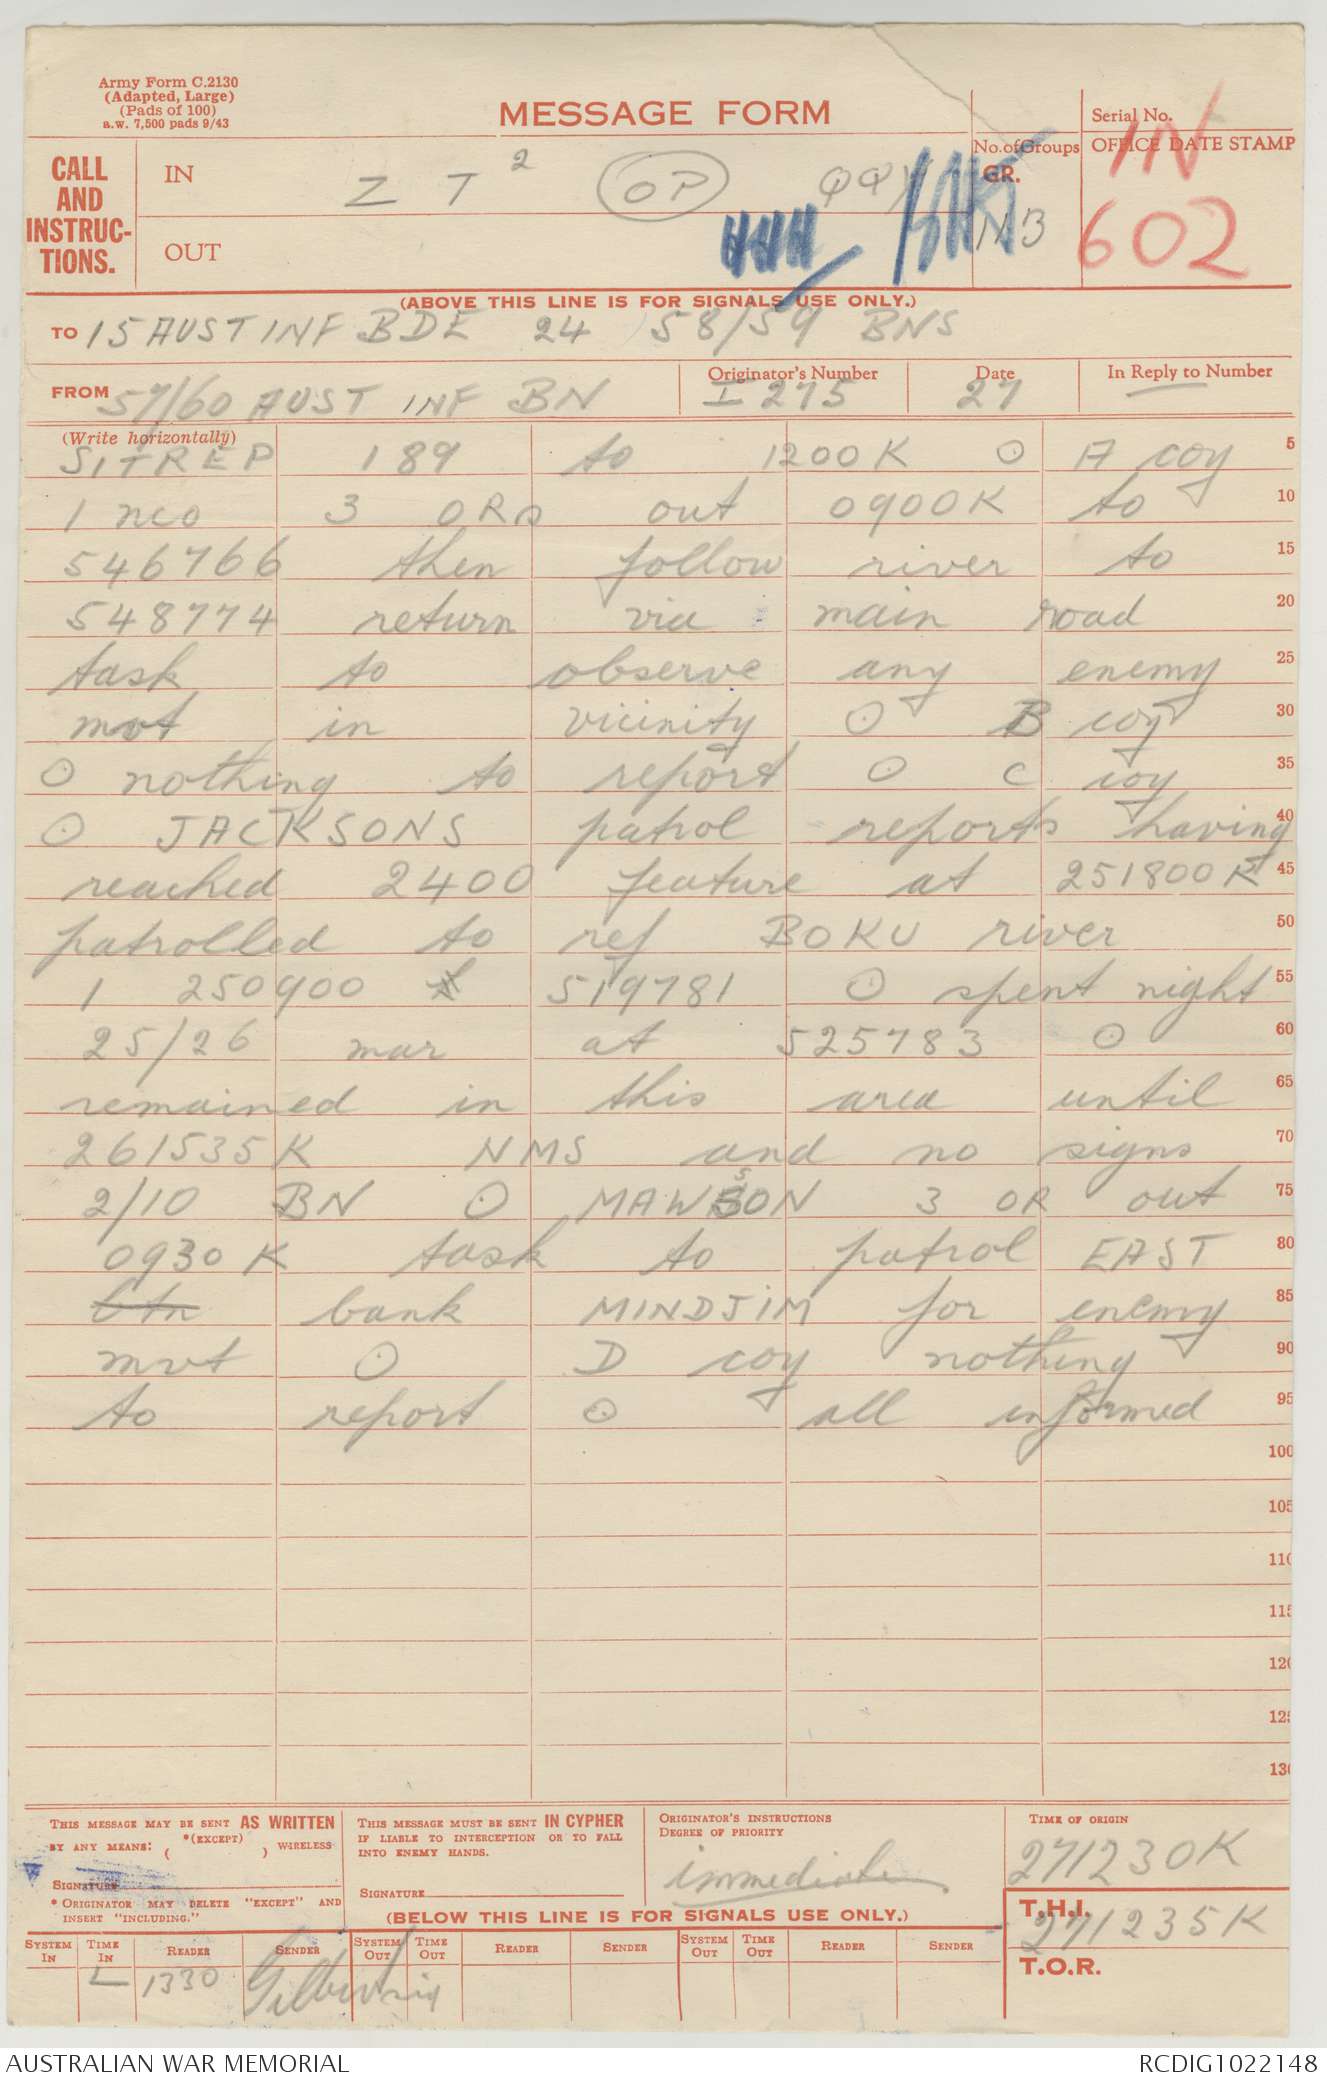 Army Form C.2130
(Adapted, Large)
(Pads of 100)
a.w. 7,500 pads 9/43
MESSAGE FORM
Serial No.
IN 602
No. of Groups
GR.
113
OFFICE DATE STAMP
CALL
AND
INSTRUC-
TIONS.
IN
Z T 2 OP
OUT
(ABOVE THIS LINE IS FOR SIGNALS USE ONLY.)
TO 15 AUST INF BDE 24 58/59 BNS
FROM 57/60 AUST INF BN
Originator's Number
I 275
Date
27
In Reply to Number
—
(Write horizontally)
SITREP 189 to 1200K O A coy 5
1 nco 3 ORs out 0900K to 10
546766 then follow river to 15
548774 return via main road 20
task to observe any enemy 25
mvt in vicinity O B coy 30
O nothing to report O C coy 35
O JACKSONS patrol reports having 40
reached 2400 feature at 251800K 45
patrolled to ref BOKU river 50
1 250900 519781 O spent night 55
25/26 mar at 525783 O 60
remained in this area until 65
261535K NMS and no signs 70
2/10 BN O MAWSON 3 OR out 75
0930K task to patrol EAST 80
bank MINDJIM for enemy 85
mvt O D coy nothing 90
to report O all informed 95
100
105
110
115
120
125
130
THIS MESSAGE MAY BE SENT AS WRITTEN
BY ANY MEANS: *(EXCEPT) ( ) WIRELESS
SIGNATURE
* ORIGINATOR MAY DELETE "EXCEPT" AND
INSERT "INCLUDING."
THIS MESSAGE MUST BE SENT IN CYPHER
IF LIABLE TO INTERCEPTION OR TO FALL
INTO ENEMY HANDS.
SIGNATURE
ORIGINATOR'S INSTRUCTIONS
DEGREE OF PRIORITY
immediate
TIME OF ORIGIN
271230K
T.H.I.
271235K
T.O.R.
(BELOW THIS LINE IS FOR SIGNALS USE ONLY.)
SYSTEM IN TIME IN READER SENDER SYSTEM OUT TIME OUT READER SENDER SYSTEM OUT TIME OUT READER SENDER
L 1330
AUSTRALIAN WAR MEMORIAL
RCDIG1022148